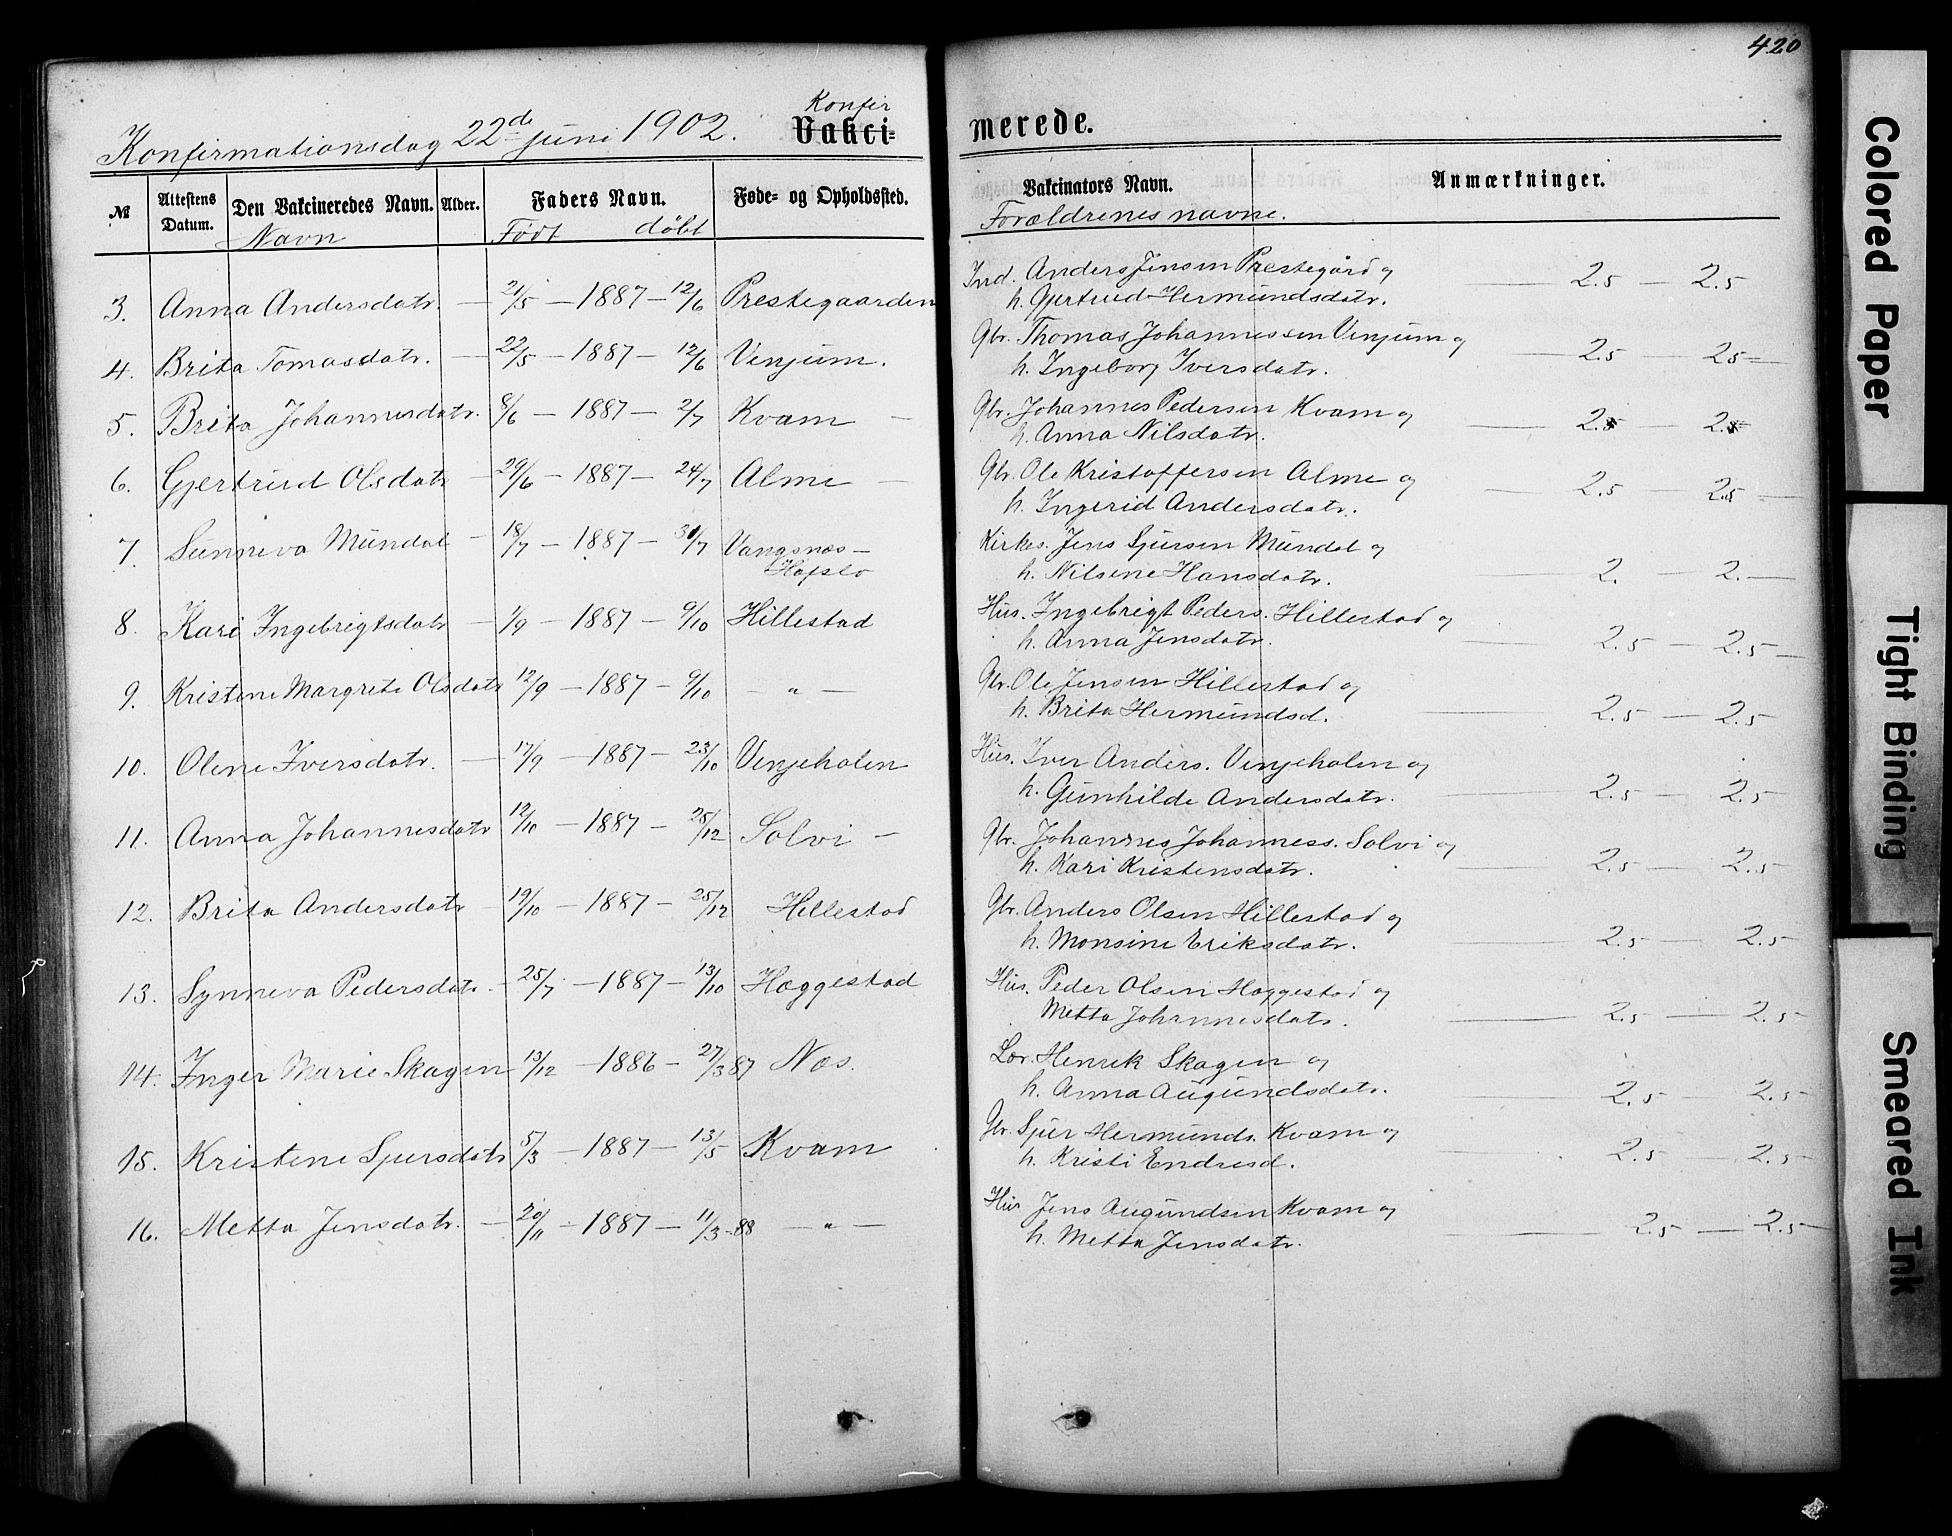 420
Konfirmationsdag 22de juni 1902.
Konfir
Vakci-
merede.
№ Attestens Datum. Den Vakcineredes Navn. Alder. Faders Navn. Føde- og Opholdssted. Vakcinators Navn. Anmærkninger.
Navn Født döbt Forældrenes navne.
3. Anna Andersdatr. — 21/5 — 1887 — 12/6 Prestegaarden Ind. Anders Jensen Prestegård og
h. Gjertrud Hermundsdatr. — 2.5 — 2.5
4. Brita Tomasdatr. — 22/5 — 1887 — 12/6 Venjum. Gbr. Thomas Johannessen Venjum og
h. Ingeborg Iversdatr. — 2.5 — 2.5 —
5. Brita Johannesdatr. 8/6 — 1887 — 2/7 Kvam — Gbr. Johannes Pedersen Kvam og
h. Anna Nilsdatr. — 2.5 — 2.5
6. Gjertrud Olsdatr — 29/6 — 1887 — 24/7 Alme — Gbr. Ole Kristoffersen Alme og
h. Ingerid Andersdatr. — 2.5 — 2.5 —
7. Sunneva Mundal — 18/7 — 1887 — 31/7 Vangsnæs —
Hafslo
Kirkes. Jens Sjursen Mundal og
h. Nilsine Hansdatr. — 2. — 2. —
8. Kari Ingebrigtsdatr — 1/9 — 1887 — 9/10 Hillestad Hus. Ingebrigt Peders. Hillestad og
h. Anna Jensdatr. — 2.5 — 2.5 —
9. Kristine Margrete Olsdatr 12/9 — 1887 — 9/10 " — Gbr. Ole Jensen Hillestad og
h. Brita Hermundsd. — 2.5 — 2.5 —
10. Oline Iversdatr. — 17/9 — 1887 — 23/10 Venjeholen Hus. Iver Anders. Venjeholen og
h. Gunhilde Andersdatr. — 2.5 — 2.5
11. Anna Johannesdatr 12/10 — 1887 — 25/12 Solvi — Gbr. Johannes Johanness. Solvi og
h. Kari Kristensdatr. — 2.5 — 2.5
12. Brita Andersdatr — 19/10 — 1887 — 25/12 Hillestad Gbr. Anders Olsen Hillestad og
h. Monsine Eriksdatr. — 2.5 — 2.5
13. Synneva Pedersdatr. — 25/7 — 1887 — 13/10 Hæggestad Hus. Peder Olsen Hæggestad og
Metta Johannesdatr. — 2.5 — 2.5
14. Inger Marie Skagen 13/12 — 1886 — 27/3 87 Næs. Lær. Henrik Skagen og
h. Anna Augundsdatr. — 2.5 — 2.5
15. Kristine Sjursdatr 5/3 — 1887 — 13/5 Kvam Gbr. Sjur Hermunds. Kvam og
h. Kristi Endresd. — 2.5 — 2.5
16. Metta Jensdatr. — 20/11 — 1887 — 11/3 -88 — " — Hus Jens Augundsen Kvam og
h. Metta Jensdatr. — 2.5 — 2.5
Colored Paper
Tight Binding
Smeared Ink